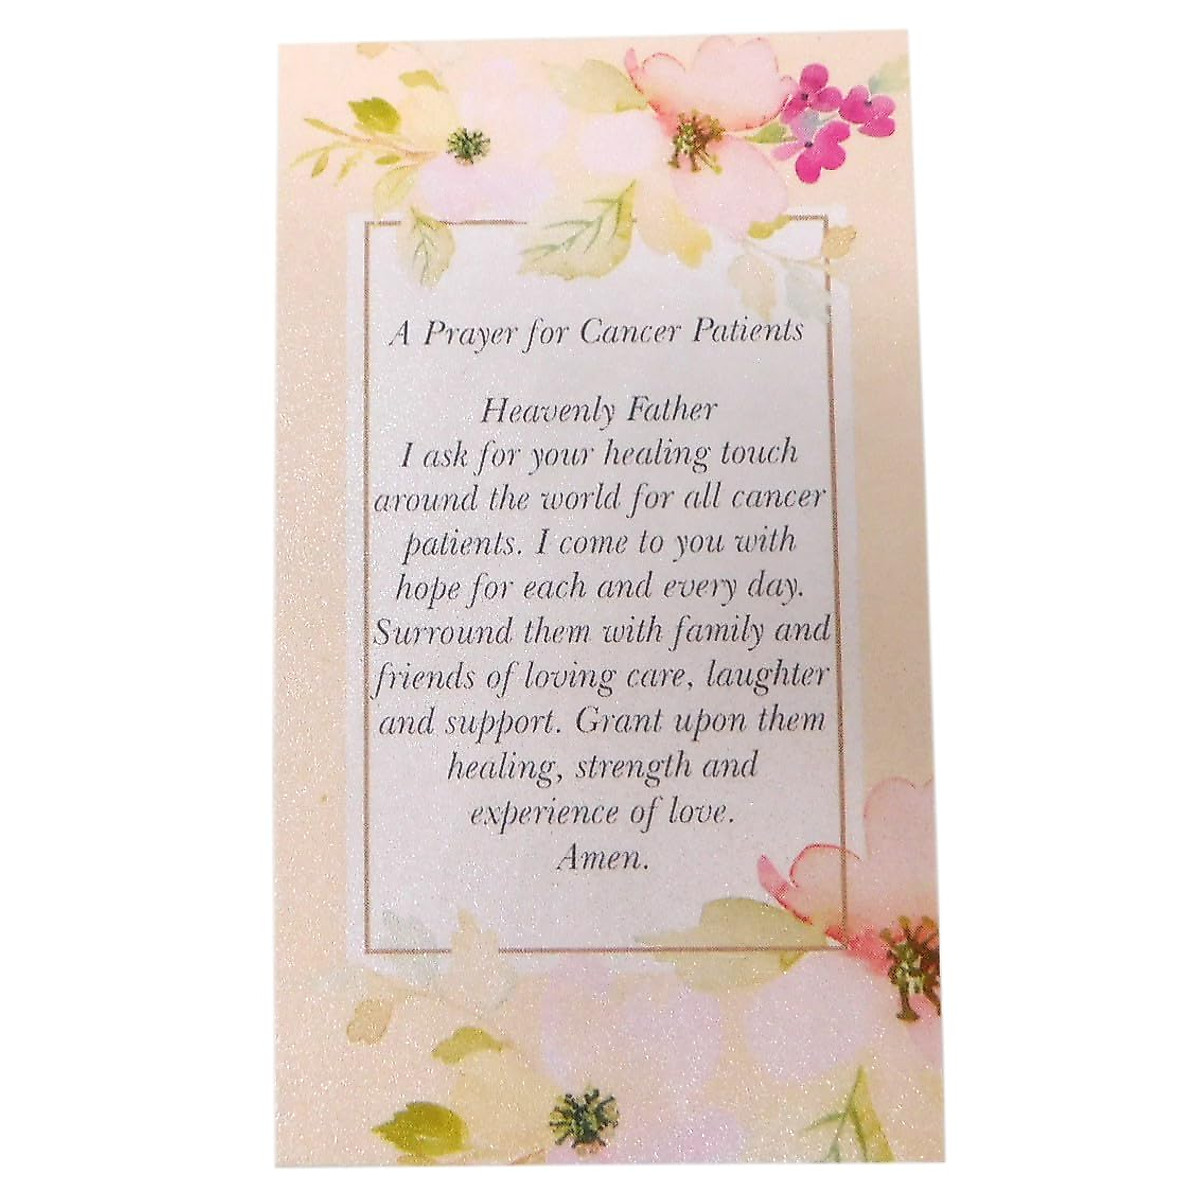 A Prayer for Cancer Patients
Heavenly Father
I ask for your healing touch
around the world for all cancer
patients. I come to you with
hope for each and every day.
Surround them with family and
friends of loving care, laughter
and support. Grant upon them
healing, strength and
experience of love.
Amen.